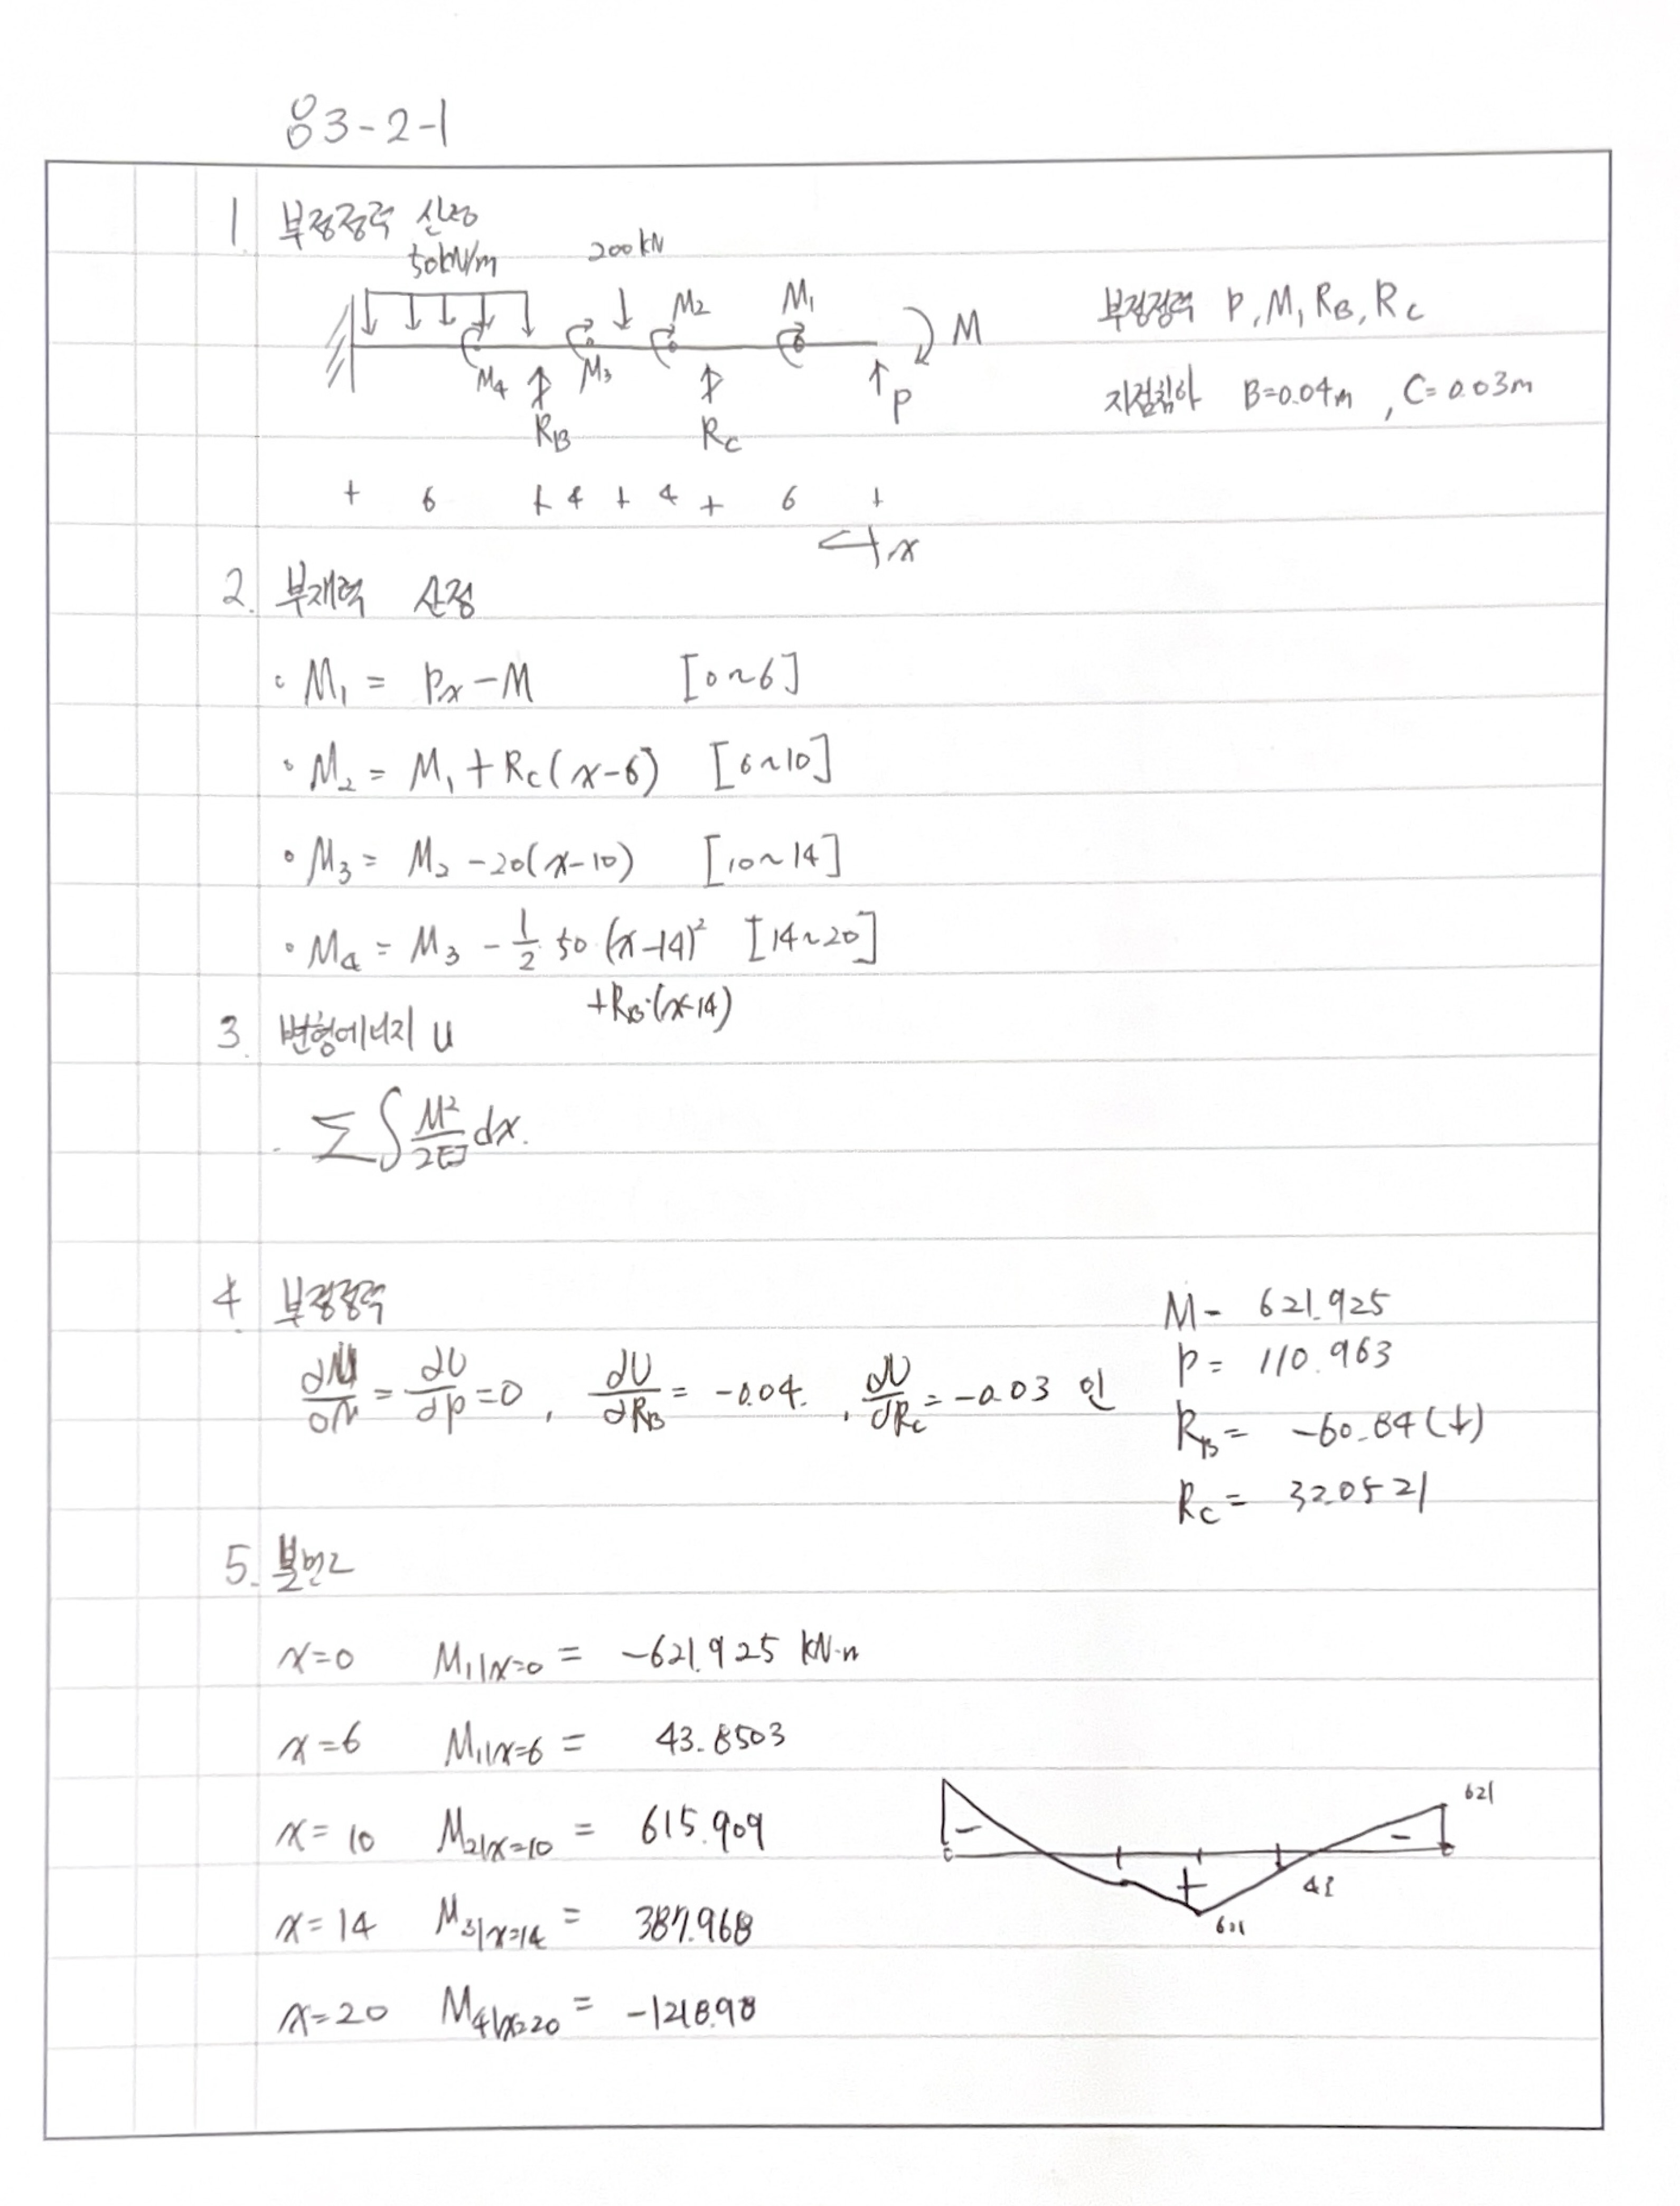 응3-2-1
1 부정정력 산정
50kN/m 200kN
M2 M1 M
M4 M3 P
RB RC
부정정력 P, M, RB, RC
지점침하 B=0.04m , C=0.03m
+ 6 + 4 + 4 + 6 +
x
2. 부재력 산정
• M1 = Px - M [0~6]
• M2 = M1 + Rc(x-6) [6~10]
• M3 = M2 -20(x-10) [10~14]
• M4 = M3 - 1/2 50 (x-14)² [14~20]
+RB·(x-14)
3. 변형에너지 U
Σ∫ M²/2EI dx.
4. 부정정력
∂U/∂M = ∂U/∂P = 0 , ∂U/∂RB = -0.04. , ∂U/∂Rc = -0.03 인
M= 621.925
P= 110.963
RB= -60.84(↓)
Rc= 320521
5.
x=0 M1|x=0 = -621.925 kN·m
x=6 M1|x=6 = 43.8503
x=10 M2|x=10 = 615.909
x=14 M3|x=14 = 387.968
x=20 M4|x=20 = -1218.98
- + -
621